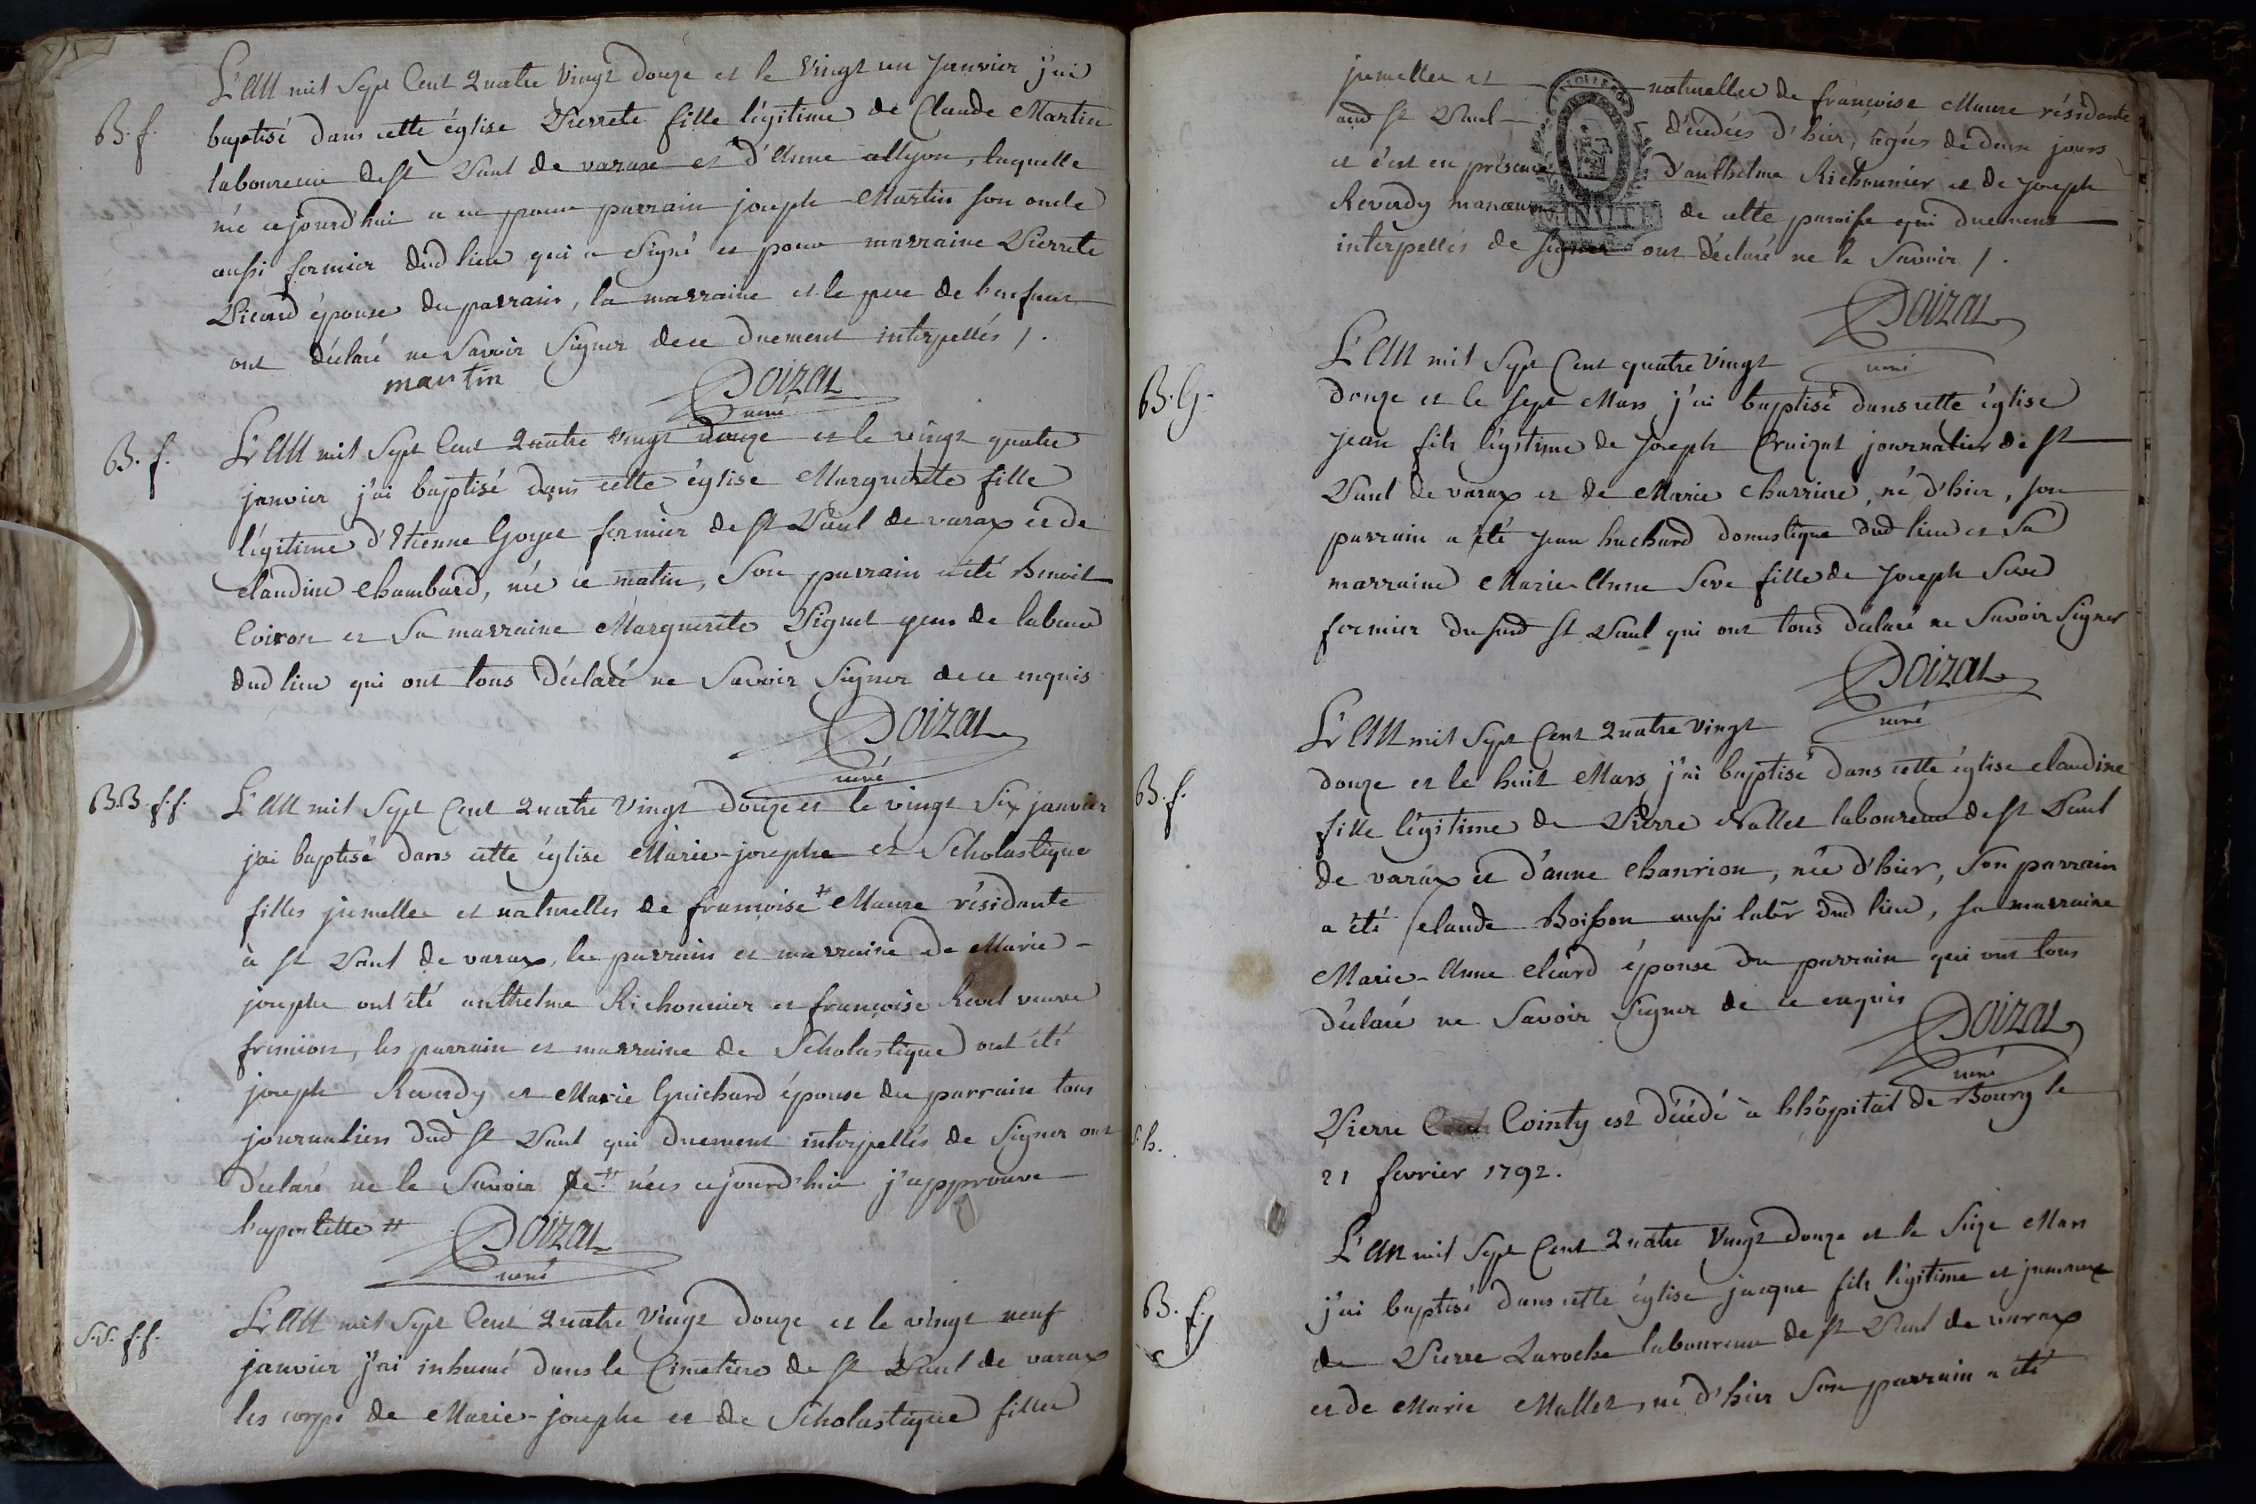 L'An mil Sept Cent Quatre Vingt douze et le Vingt un Janvier j'ai
B. f. baptisé dans cette église Pierrete fille légitime de Claude Martin
laboureur de St Paul de varax et d'Anne allyon, laquelle
née cejourd'hui a eu pour parrain joseph Martin son oncle
aussi fermier dud lieu qui a Signé et pour marraine Pierrete
Picard épouse du parrain, la marraine et le pere de l'enfant
ont déclaré ne Savoir Signer de ce duement interpellés /.
martin Doizat
curé
B. f. L'An mil Sept Cent Quatre Vingt douze et le vingt quatre
janvier j'ai baptisé dans cette église Marguerite fille
légitime d'Etienne Goyet fermier de St Paul de varax et de
claudine Chambard, née ce matin, Son parrain a été Benoit
Coiron et Sa marraine Marguerite Piguet gens de labeur
dud lieu qui ont tous déclaré ne Savoir Signer de ce enquis
Doizat
curé
B.B. f.f. L'An mil Sept Cent Quatre Vingt douze et le vingt Six janvier
j'ai baptisé dans cette église Marie-josephe et Scholastique
filles jumelles et naturelles de francoise # Maure résidante
à St Paul de varax, les parrain et marraine de Marie-
josephe ont été anthelme Richonnier et francoise Revel veuve
fremion, les parrain et marraine de Scholastique ont été
joseph Reverdy et Marie Guichard épouse du parrain tous
journaliers dud St Paul qui duement interpellés de Signer ont
déclaré ne le Savoir # nées cejourd'hui j'approuve
l'apostille #
Doizat
curé
S.S. f.f. L'An mil Sept Cent Quatre Vingt douze et le vingt neuf
janvier j'ai inhumé dans le Cimetiere de St Paul de varax
les corps de Marie-josephe et de Scholastique filles
jumelles et naturelles de francoise Maure résidante
aud St Paul décédées d'hier, agées de deux jours
et c'est en présence d'anthelme Richonnier et de Joseph
Reverdy manoeuvres de cette paroisse qui duement
interpellés de signer ont déclaré ne le Savoir /.
MINUTE
Doizat
curé
L'An mil Sept Cent quatre Vingt
B. G. douze et le Sept Mars j'ai baptisé dans cette église
Jean fils légitime de Joseph Cruizat journalier de St
Paul de varax et de Marie Charriere, né d'hier, son
parrain a été Jean huchard domestique dud lieu et Sa
marraine Marie-Anne Seve fille de Joseph Seve
fermier du sud St Paul qui ont tous déclaré ne Savoir Signer
Doizat
curé
L'An mil Sept Cent Quatre Vingt
B. f. douze et le huit Mars j'ai baptisé dans cette église claudine
fille légitime de Pierre Nallet laboureur de St Paul
de varax et d'anne Chanrion, née d'hier, Son parrain
a été Claude Boisson aussi labr dud lieu, sa marraine
Marie-Anne Cleard épouse du parrain qui ont tous
déclaré ne Savoir Signer de ce enquis
Doizat
curé
S. h. Pierre Cointy est décédé à l'hôpital de Bourg le
21 fevrier 1792.
L'An mil Sept Cent Quatre Vingt douze et le Seize Mars
B. f. j'ai baptisé dans cette église jacque fils légitime et jumeaux
de Pierre Laroche laboureur de St Paul de varax
et de Marie Mallet, né d'hier Son parrain a été